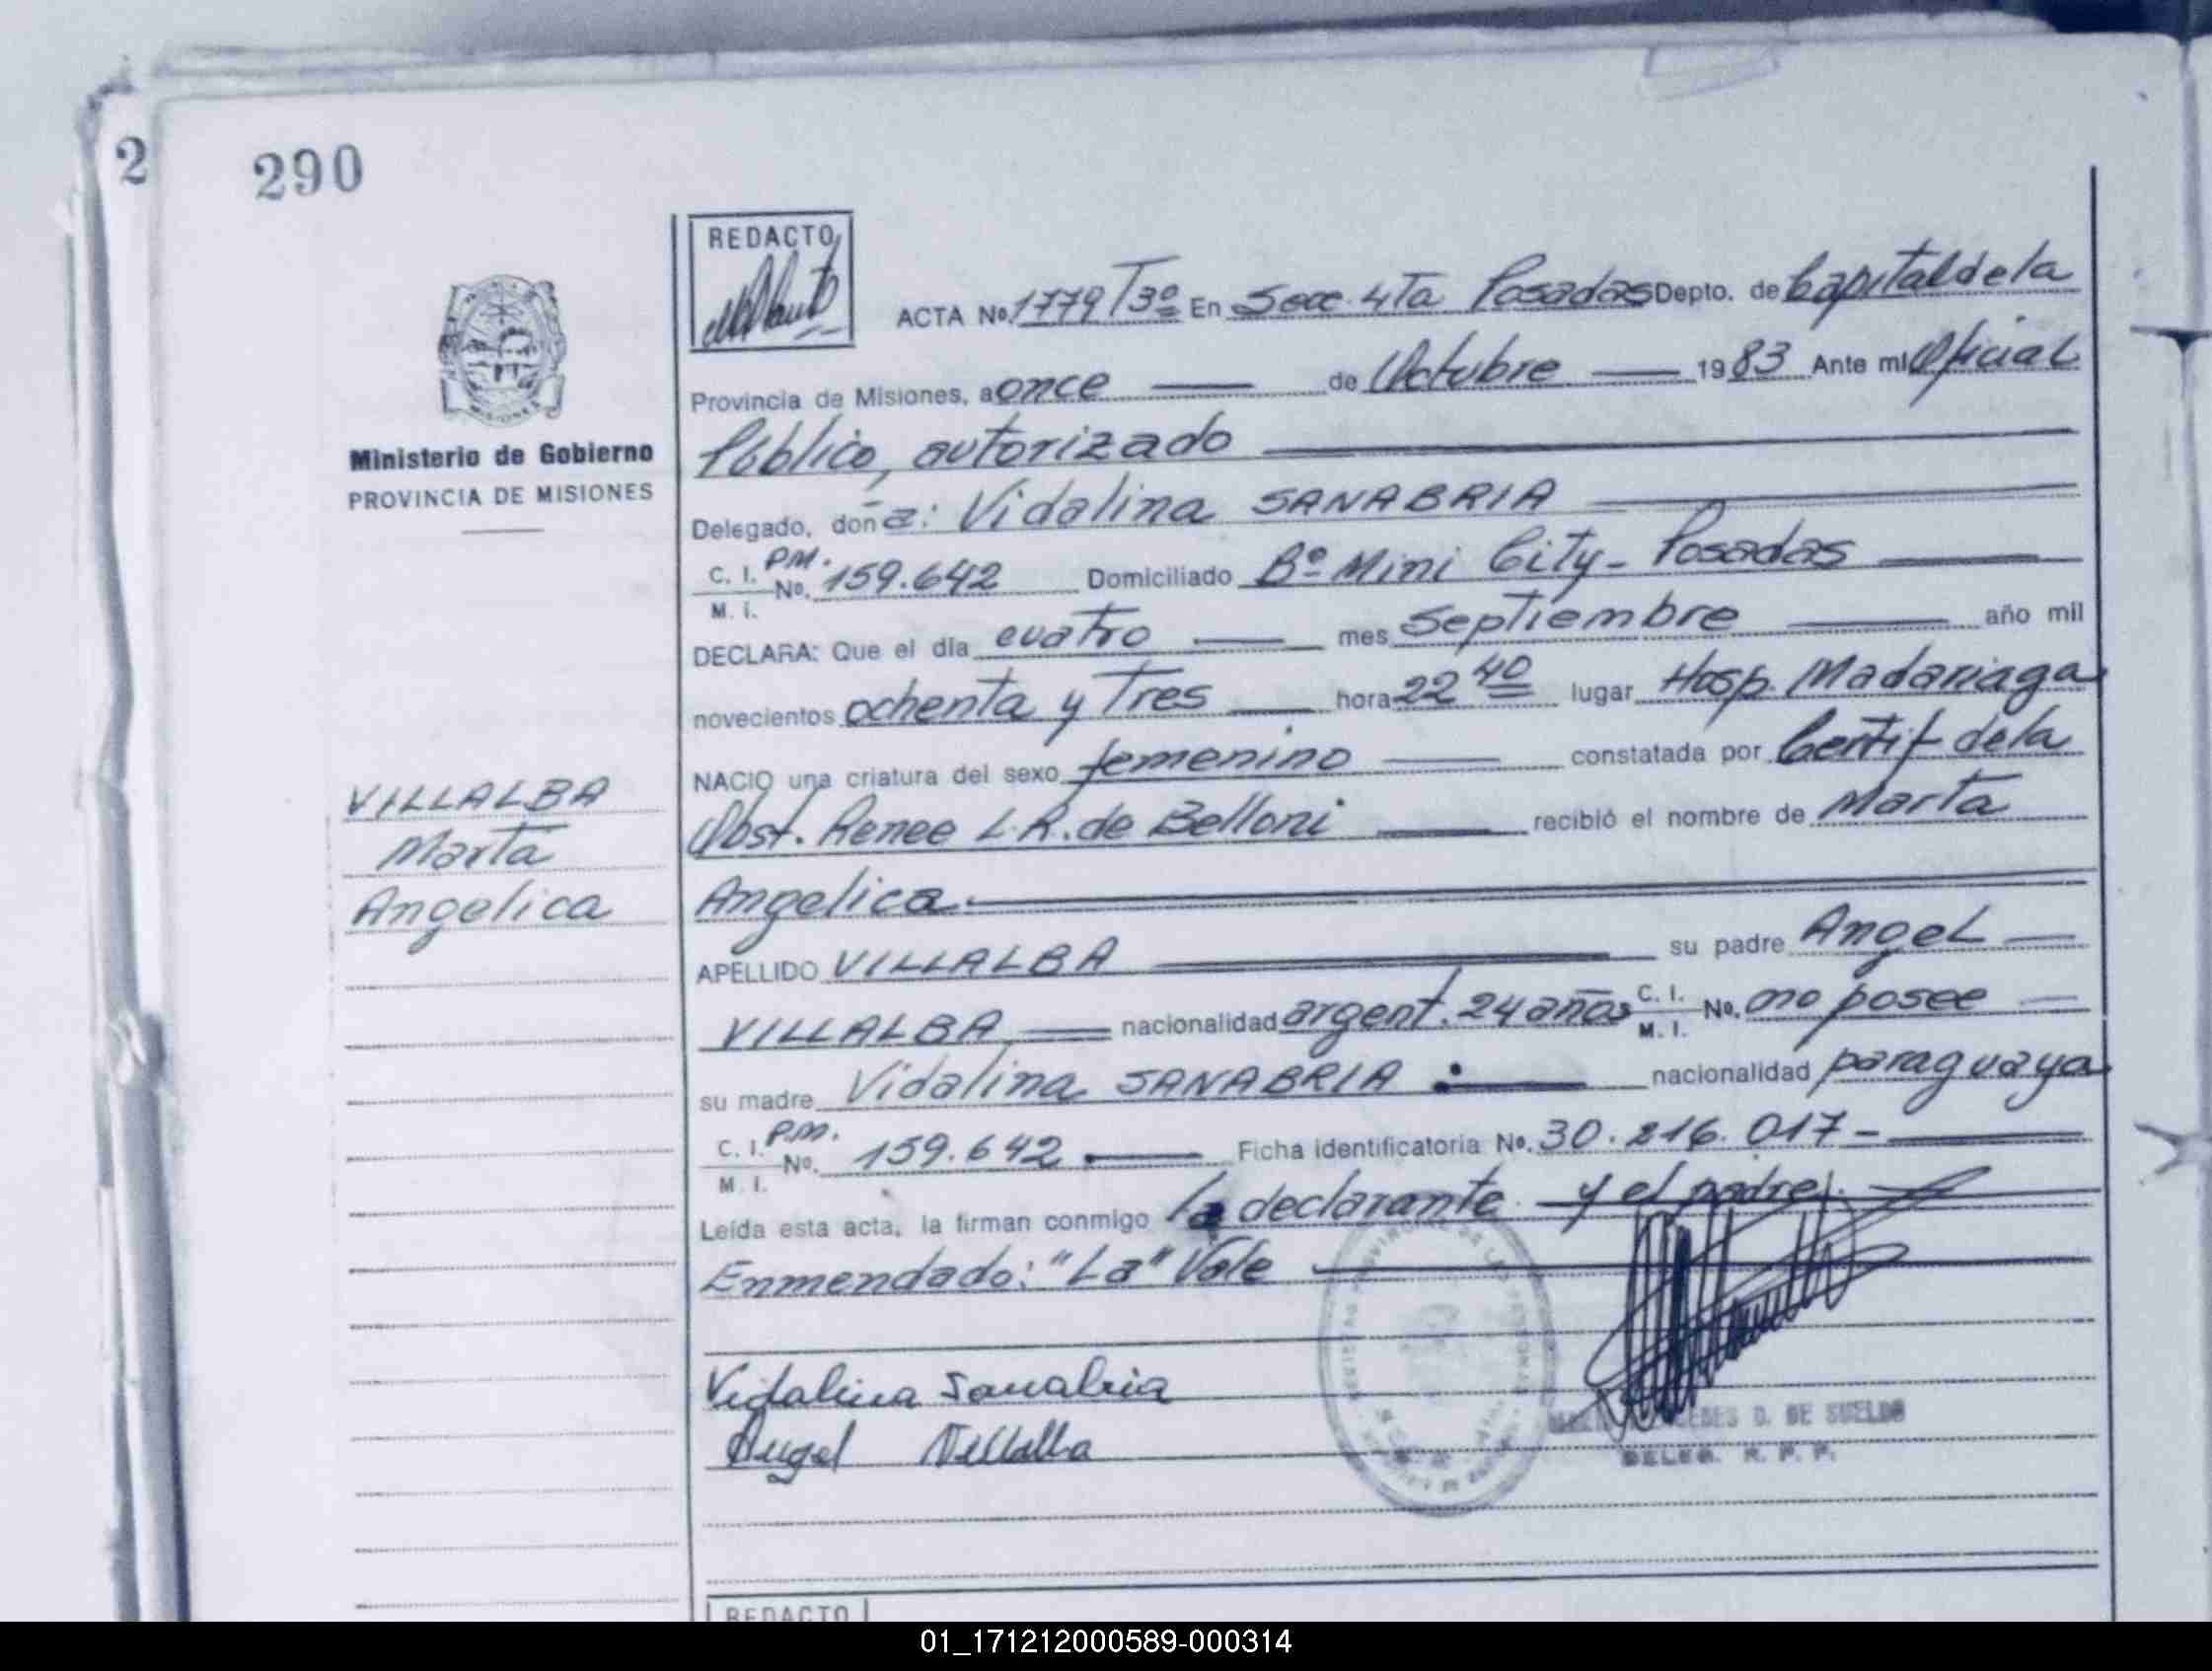 2
290
REDACTO
ACTA No. 1779 T3º En Secc. 4Ta Posadas Depto. de Capital de la
Provincia de Misiones, a once de Octubre 1983 Ante mi Oficial
Ministerio de Gobierno
PROVINCIA DE MISIONES
Público, autorizado
Delegado, doña: Vidalina SANABRIA
C. I. P.M. No. 159.642 Domiciliado Bº Mini City - Posadas
M. I.
DECLARA: Que el día cuatro mes septiembre año mil
novecientos ochenta y Tres hora 22 40 lugar Hosp. Madariaga
NACIO una criatura del sexo femenino constatada por Certif de la
Obst. Renee L.R. de Belloni recibió el nombre de Marta
Angelica
VILLALBA
Marta
Angelica
APELLIDO VILLALBA su padre Angel
VILLALBA nacionalidad argent. 24 años C. I. No. no posee
M. I.
su madre Vidalina SANABRIA nacionalidad paraguaya
C. I. P.M. No. 159.642 Ficha identificatoria No. 30.216.017-
M. I.
Leída esta acta, la firman conmigo la declarante y el padre.
Enmendado: "La" Vale
Vidalina Sanabria
Angel Villalba
D. DE SUELDO
DELEG. R. P. P.
REDACTO
01_171212000589-000314